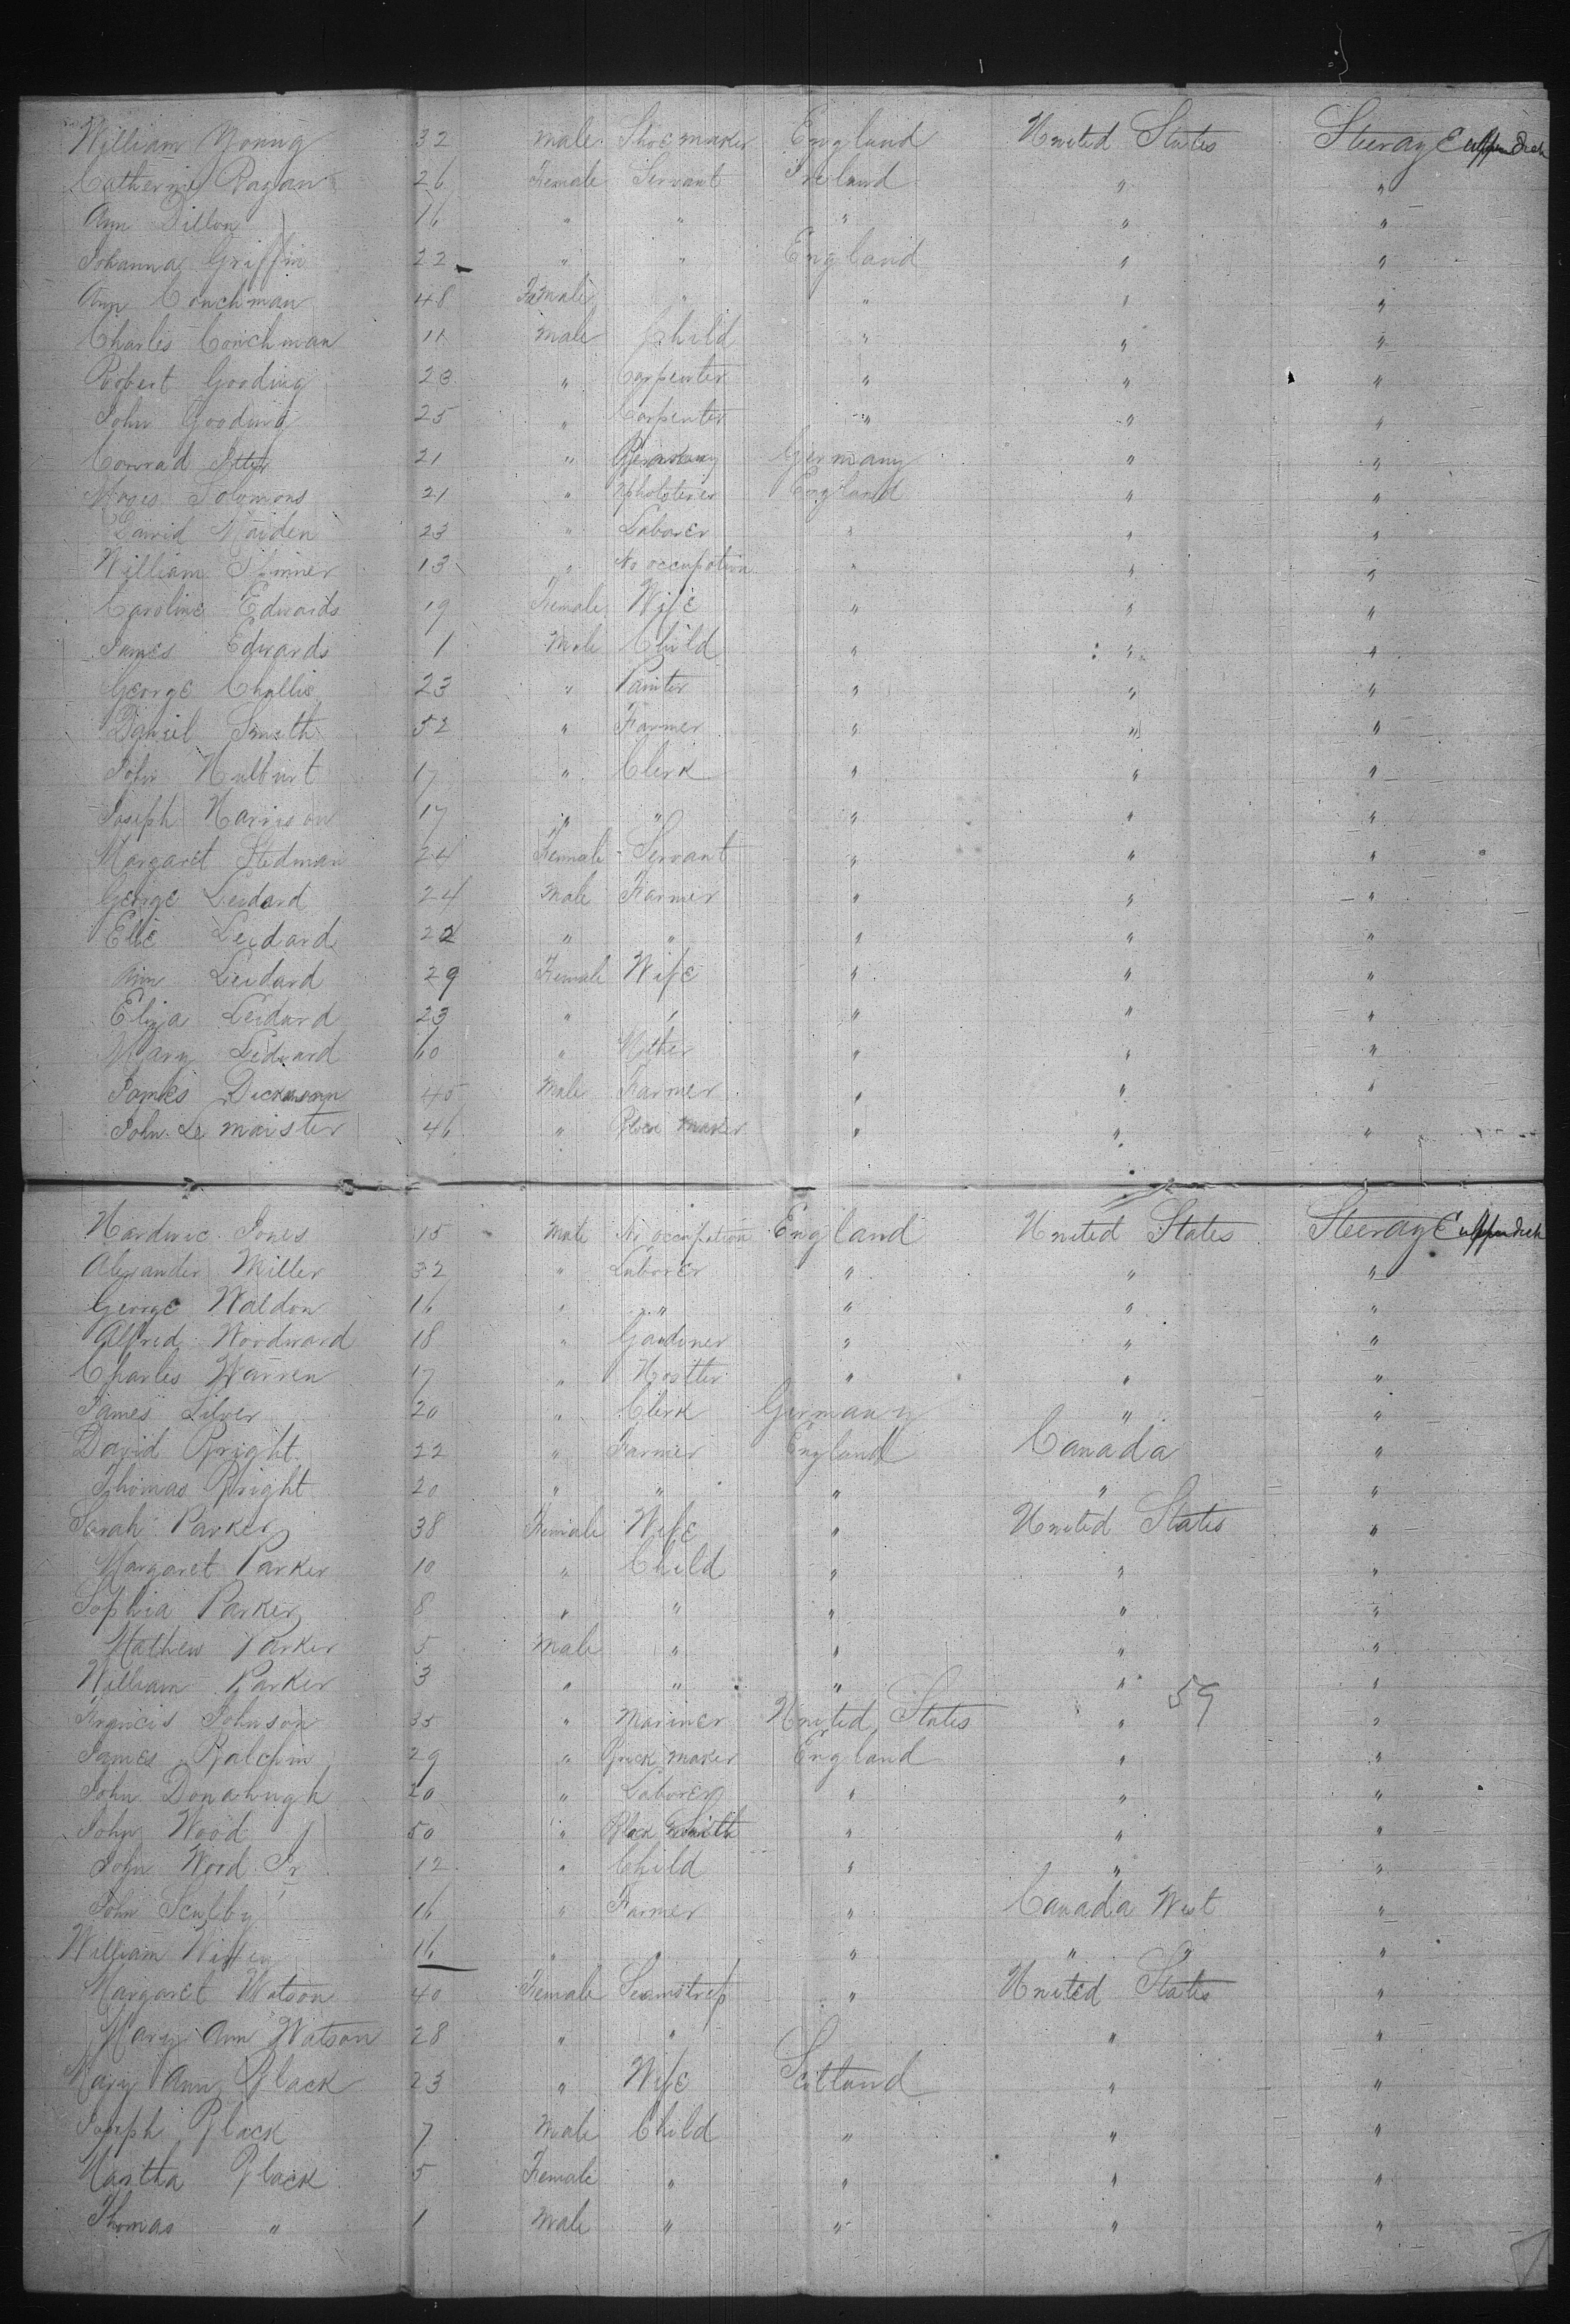 William Young 32 male Shoe maker England United States Steerage upper deck
Catherine Ragan 26 Female Servant Ireland " "
Ann Dillon 16 " " " " "
Johanna Griffin 22 " " England " "
Ann Conchman 48 Female " " " "
Charles Conchman 11 male Child " " "
Robert Gooding 23 " Carpenter " " "
John Gooding 25 " Carpenter " " "
Conrad 21 " Germany " "
Moses Solomons 21 " Upholsterer England " "
David Maiden 23 " Laborer " " "
William 13 " No occupation " " "
Caroline Edwards 19 Female Wife " " "
James Edwards 1 Male Child " " "
George Challis 23 " Painter " " "
Daniel Smith 52 " Farmer " " "
John Hulburt 17 " Clerk " " "
Joseph Harrison 17 " " " " "
Margaret Stedman 24 Female Servant " " "
George Leidard 24 Male Farmer " " "
Elie Leidard 22 " " " " "
Ann Leidard 29 Female Wife " " "
Eliza Leidard 23 " " " " "
Mary Lidward 60 " Mther " " "
James 45 Male Farmer " " "
John Le maister 46 " Block maker " " "
Hardwic Jones 15 Male No occupation England United States Steerage upper deck
Alexander Miller 32 " Laborer " " "
George Waldon 16 " " " " "
Alfred Woodward 18 " Gardiner " " "
Charles Warren 17 " Hostler " " "
James Silver 20 " Clerk Germany " "
David Bright 22 " Farmer England Canada "
Thomas Bright 20 " " " " "
Sarah Parker 38 Female Wife " United States "
Margaret Parker 10 " Child " " "
Sophia Parker 8 " " " " "
Mathew Parker 5 Male " " " "
William Parker 3 " " " " "
59
Francis Johnson 35 " Mariner United States " "
James Balchin 29 " Brick maker England " "
John Donahugh 20 " Laborer " " "
John Wood 50 " Black Smith " " "
John Wood Jr 12 " Child " " "
John Sculby 16 " Farmer " Canada West "
William 16 " " " " " "
Margaret Watson 40 Female Seamstress " United States "
Mary Ann Watson 28 " " " "
Mary Ann Black 23 " Wife Scotland " "
Joseph Black 7 Male Child " " "
Martha Black 5 Female " " " "
Thomas " 1 Male " " " "